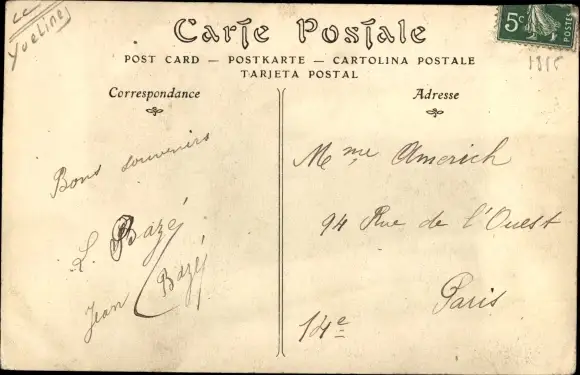 Yvelines
Carte Postale
POST CARD — POSTKARTE — CARTOLINA POSTALE
TARJETA POSTAL
5c
POSTES
Correspondance
Bons souvenirs
L. Bazé
Jean Bazé
Adresse
Mme Americh
94 Rue de l'Ouest
Paris
14e